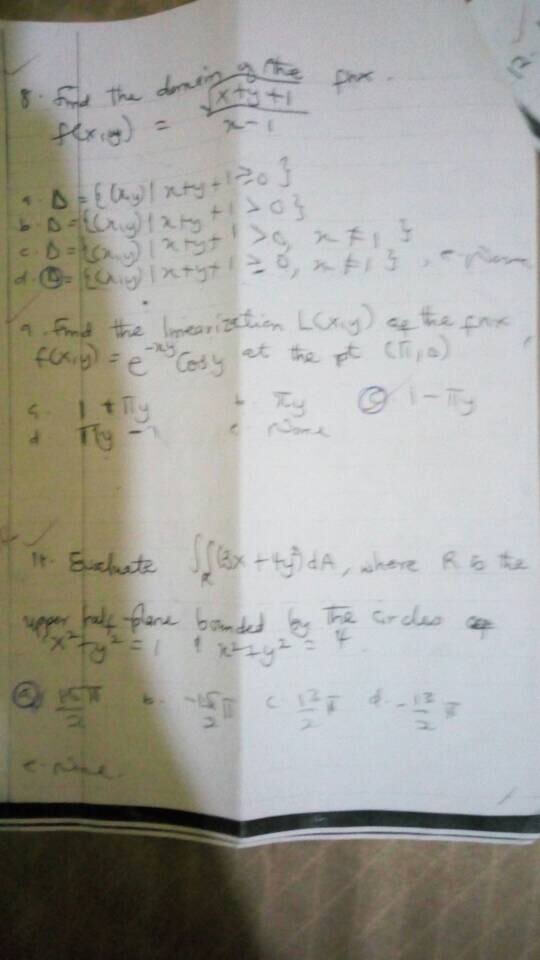 8. Find the domain of the fnx.
f(x,y) = √(x+y+1) / x-1
a. D = {(x,y) | x+y+1 ≥ 0}
b. D = {(x,y) | x+y+1 > 0}
c. D = {(x,y) | x+y+1 > 0, x ≠ 1}
d. D = {(x,y) | x+y+1 ≥ 0, x ≠ 1}, e. None
9. Find the linearization L(x,y) of the fnx,
f(x,y) = e^-xy Cos y at the pt (π,0)
a. 1 + πy b. πy c. 1 - πy
d πy - 1 e. None
14. Evaluate ∬_R (3x + 4y²) dA, where R is the
upper half-plane bounded by the circles
x² + y² = 1 & x² + y² = 4.
a. 15/2 π b. -15/2 π c. 13/2 π d. -13/2 π
e. None.